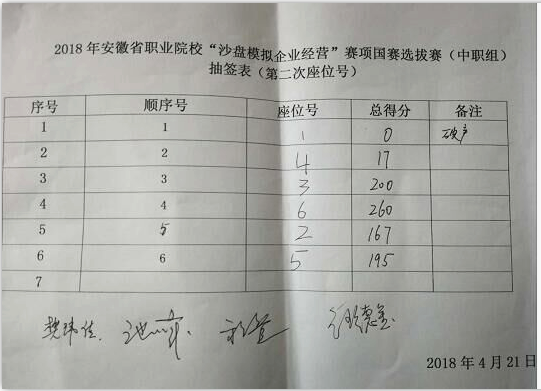 2018 年安徽省职业院校“沙盘模拟企业经营”赛项国赛选拔赛（中职组）
抽签表（第二次座位号）
序号 顺序号 座位号 总得分 备注
1 1 1 0 破产
2 2 4 17
3 3 3 200
4 4 6 260
5 5 2 167
6 6 5 195
7
2018 年 4 月 21 日